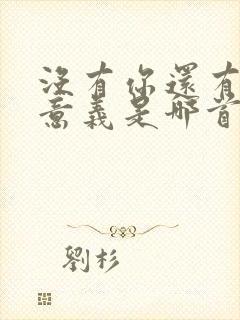 沒有你還有
意義是哪首
劉杉